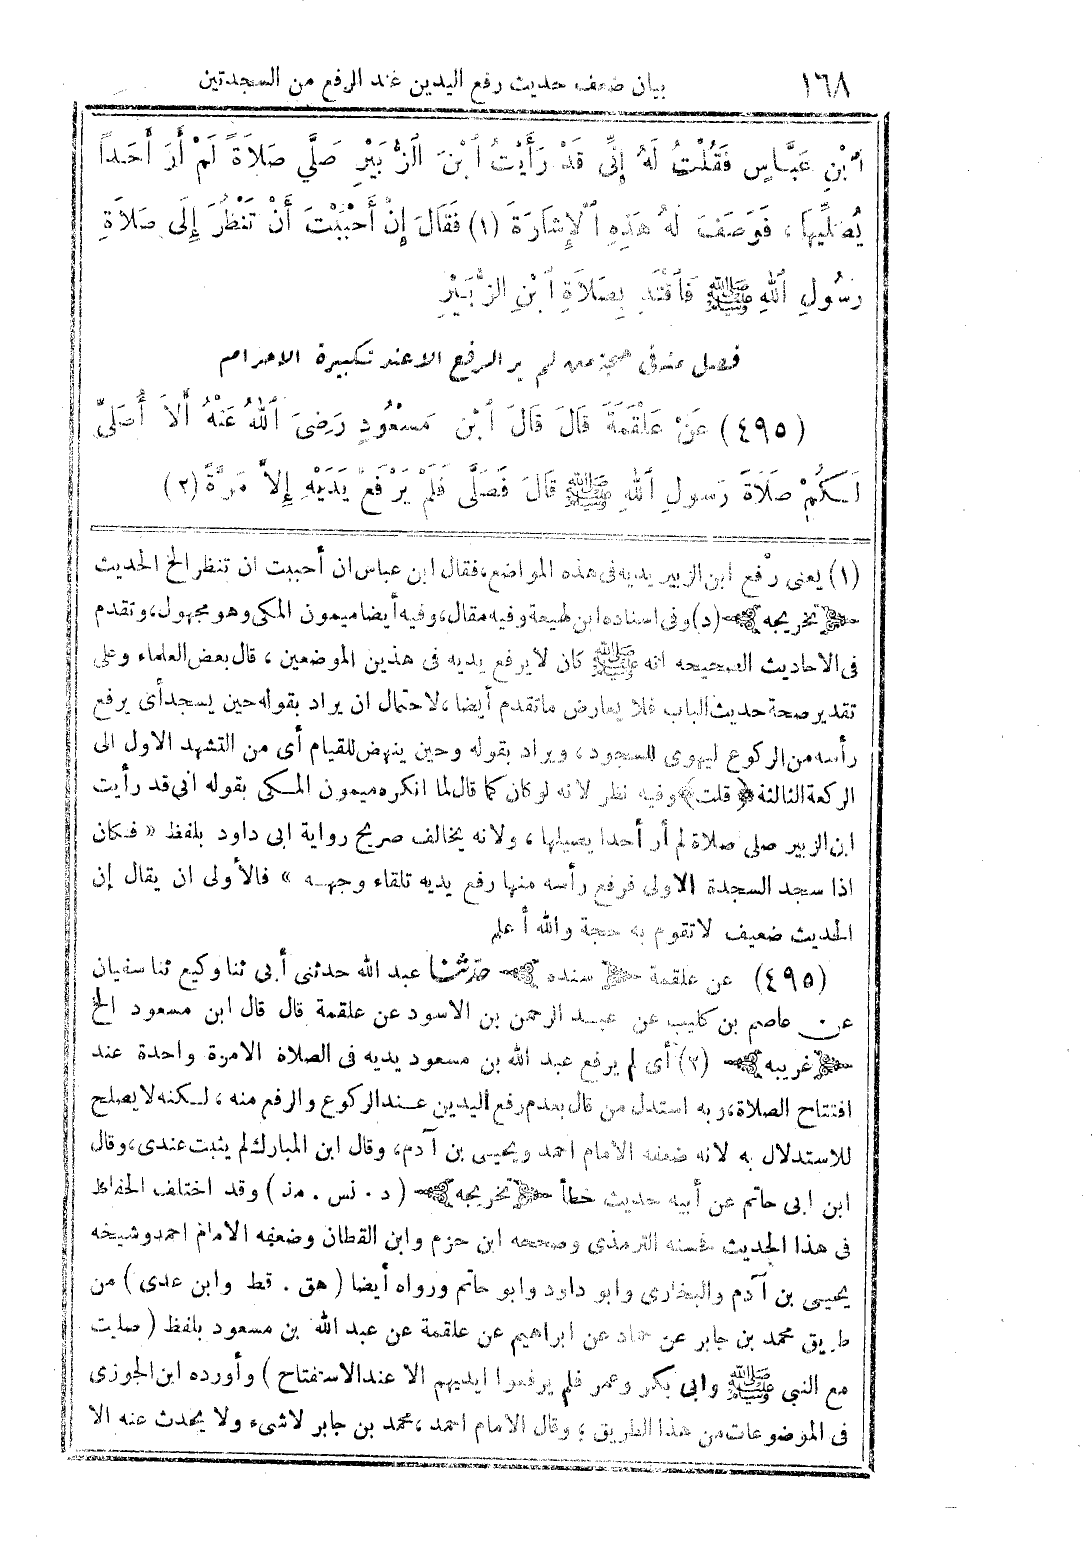 ١٦٨ بيان ضعف حديث رفع اليدين عند الرفع من السجدتين
ٱبْنِ عَبَّاسٍ فَقُلْتُ لَهُ إِنِّى قَدْ رَأَيْتُ ٱبْنَ ٱلزُّبَيْرِ صَلَّي صَلَاةً لَمْ أَرَ أَحَداً
يُصَلِّيهَا، فَوَصَفَ لَهُ هَذِهِ ٱلْإِشَارَةَ (١) فَقَالَ إِنْ أَحْبَبْتَ أَنْ تَنْظُرَ إِلَى صَلَاةِ
رَسُولِ ٱللهِ ﷺ فَٱقْتَدِ بِصَلاَةِ ٱبْنِ الزُّبَيْرِ
فصل منه فى حجة من لم ير الرفع الا عند تكبيرة الاحرام
(٤٩٥) عَنْ عَلْقَمَةَ قَالَ قَالَ ٱبْنُ مَسْعُودٍ رَضِىَ ٱللهُ عَنْهُ أَلاَ أُصَلِّى
لَكُمْ صَلَاةَ رَسُولِ ٱللهِ ﷺ قَالَ فَصَلَّى فَلَمْ يَرْفَعْ يَدَيْهِ إِلاَّ مَرَّةً (٢)
(١) يعنى رفع ابن الزبير يديه فى هذه المواضع، فقال ابن عباس ان أحببت ان تنظر الخ الحديث
﴿تخريجه﴾ (د) وفى اسناده ابن لهيعة وفيه مقال، وفيه أيضا ميمون المكى وهو مجهول، وتقدم
فى الاحاديث الصحيحه انه ﷺ كان لا يرفع يديه فى هذين الموضعين، قال بعض العلماء وعلى
تقدير صحة حديث الباب فلا يعارض ماتقدم أيضا، لاحتمال ان يراد بقوله حين يسجد أى يرفع
رأسه من الركوع ليهوى للسجود، ويراد بقوله وحين ينهض للقيام أى من التشهد الاول الى
الركعة الثالثة ﴿قلت﴾ وفيه نظر لانه لو كان كما قال لما انكره ميمون المكى بقوله انى قد رأيت
ابن الزبير صلى صلاة لم أر أحدا يصليها، ولانه يخالف صريح رواية ابى داود بلفظ « فكان
اذا سجد السجدة الاولى فرفع رأسه منها رفع يديه تلقاء وجهه » فالأولى ان يقال إن
الحديث ضعيف لاتقوم به حجة والله أعلم
(٤٩٥) عن علقمة ﴿سنده﴾ حدثنا عبد الله حدثنى أبى ثنا وكيع ثنا سفيان
عن عاصم بن كليب عن عبد الرحمن بن الاسود عن علقمة قال قال ابن مسعود الخ
﴿غريبه﴾ (٢) أى لم يرفع عبد الله بن مسعود يديه فى الصلاة الا مرة واحدة عند
افتتاح الصلاة، وبه استدل من قال بعدم رفع اليدين عند الركوع والرفع منه، لكنه لا يصلح
للاستدلال به لانه ضعفه الامام احمد ويحيى بن آدم، وقال ابن المبارك لم يثبت عندى، وقال
ابن ابى حاتم عن أبيه حديث خطأ ﴿تخريجه﴾ (د . نس . مذ) وقد اختلف الحفاظ
فى هذا الحديث فحسنه الترمذى وصححه ابن حزم وابن القطان وضعفه الامام احمد وشيخه
يحيى بن آدم والبخارى وابو داود وابو حاتم ورواه أيضا (هق . قط وابن عدى) من
طريق محمد بن جابر عن حماد عن ابراهيم عن علقمة عن عبد الله بن مسعود بلفظ (صليت
مع النبي ﷺ وابى بكر وعمر فلم يرفعوا ايديهم الا عند الاستفتاح) وأورده ابن الجوزى
فى الموضوعات من هذا الطريق؛ وقال الامام احمد، محمد بن جابر لاشىء ولا يحدث عنه الا